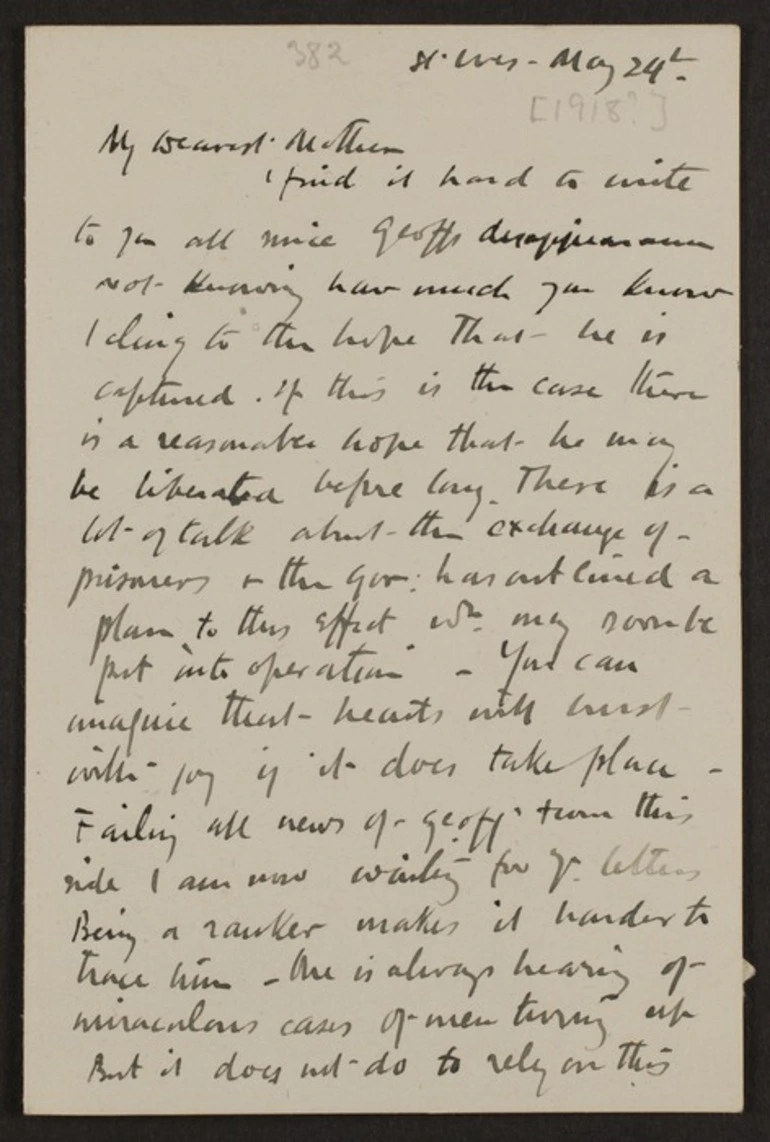 382
St. Ives - May 24th.
[1918?]
My Dearest Mother
I find it hard to write
to you all since Geoffs disappearance
not knowing how much you know
I cling to the hope that he is
captured. If this is the case there
is a reasonable hope that he may
be liberated before long. There is a
lot of talk about the exchange of
prisoners & the Gov: has outlined a
plan to this effect wh. may soon be
put into operation - You can
imagine that hearts will burst
with joy if it does take place -
Failing all news of Geoff from this
side I am now waiting for yr. letters
Being a ranker makes it harder to
trace him - One is always hearing of
miraculous cases of men turning up
But it does not do to rely on this